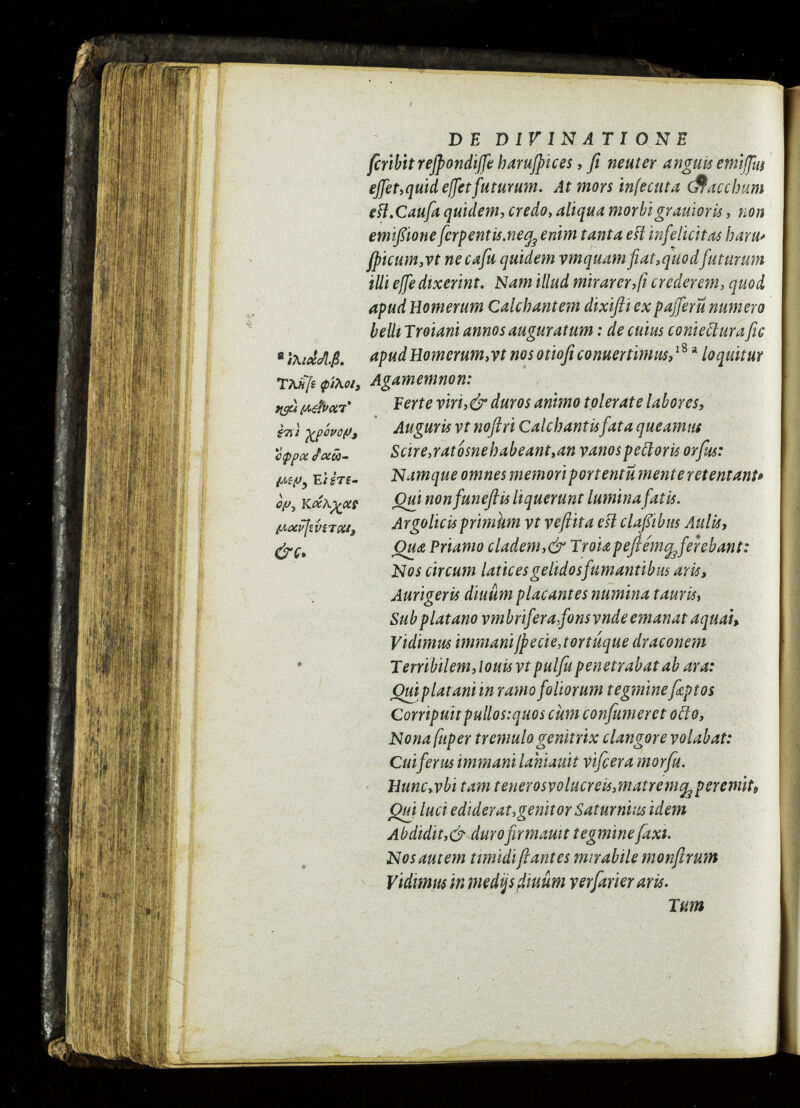 DE DIVINATIONE
ſcribit reſpondiſſe haruſpices, ſi neuter anguis emiſſus
eſſet, quid eſſet futurum. At mors inſecuta Gracchum
eſt. Cauſa quidem, credo, aliqua morbi grauioris, non
emiſsione ſerpentis. neq; enim tanta eſt infelicitas haru-
ſpicum, vt ne caſu quidem vmquam fiat, quod futurum
illi eſſe dixerint. Nam illud mirarer, ſi crederem, quod
apud Homerum Calchantem dixiſti ex paſſerū numero
belli Troiani annos auguratum: de cuius coniectura ſic
apud Homerum, vt nos otioſi conuertimus,¹⁸ ᵃ loquitur
Agamemnon:
Ferte viri, & duros animo tolerate labores,
Auguris vt noſtri Calchantis fata queamus
Scire, ratósne habeant, an vanos pectoris orſus:
Namque omnes memori portentū mente retentant,
Qui non funeſtis liquerunt lumina fatis.
Argolicis primùm vt veſtita eſt claſsibus Aulis,
Quæ Priamo cladem, & Troiæ peſtémq; ferebant:
Nos circum latices gelidos fumantibus aris,
Aurigeris diuûm placantes numina tauris,
Sub platano vmbrifera, fons vnde emanat aquai,
Vidimus immani ſpecie, tortúque draconem
Terribilem, Iouis vt pulſu penetrabat ab ara:
Qui platani in ramo foliorum tegmine ſæptos
Corripuit pullos: quos cùm conſumeret octo,
Nona ſuper tremulo genitrix clangore volabat:
Cui ferus immani laniauit viſcera morſu.
Hunc, vbi tam teneros volucreis, matremq; peremit,
Qui luci ediderat, genitor Saturnius idem
Abdidit, & duro firmauit tegmine ſaxi.
Nos autem timidi ſtantes mirabile monſtrum
Vidimus in medijs diuûm verſarier aris.
Tum
ᵃ ἰλιάδ.β.
Τλῆτε φίλοι,
καὶ μείνατ'
ἐπὶ χρόνον,
ὄφρα δαῶ-
μεν, Εἰ ἐτε-
ὸν, Κάλχας
μαντεύεται,
&c.